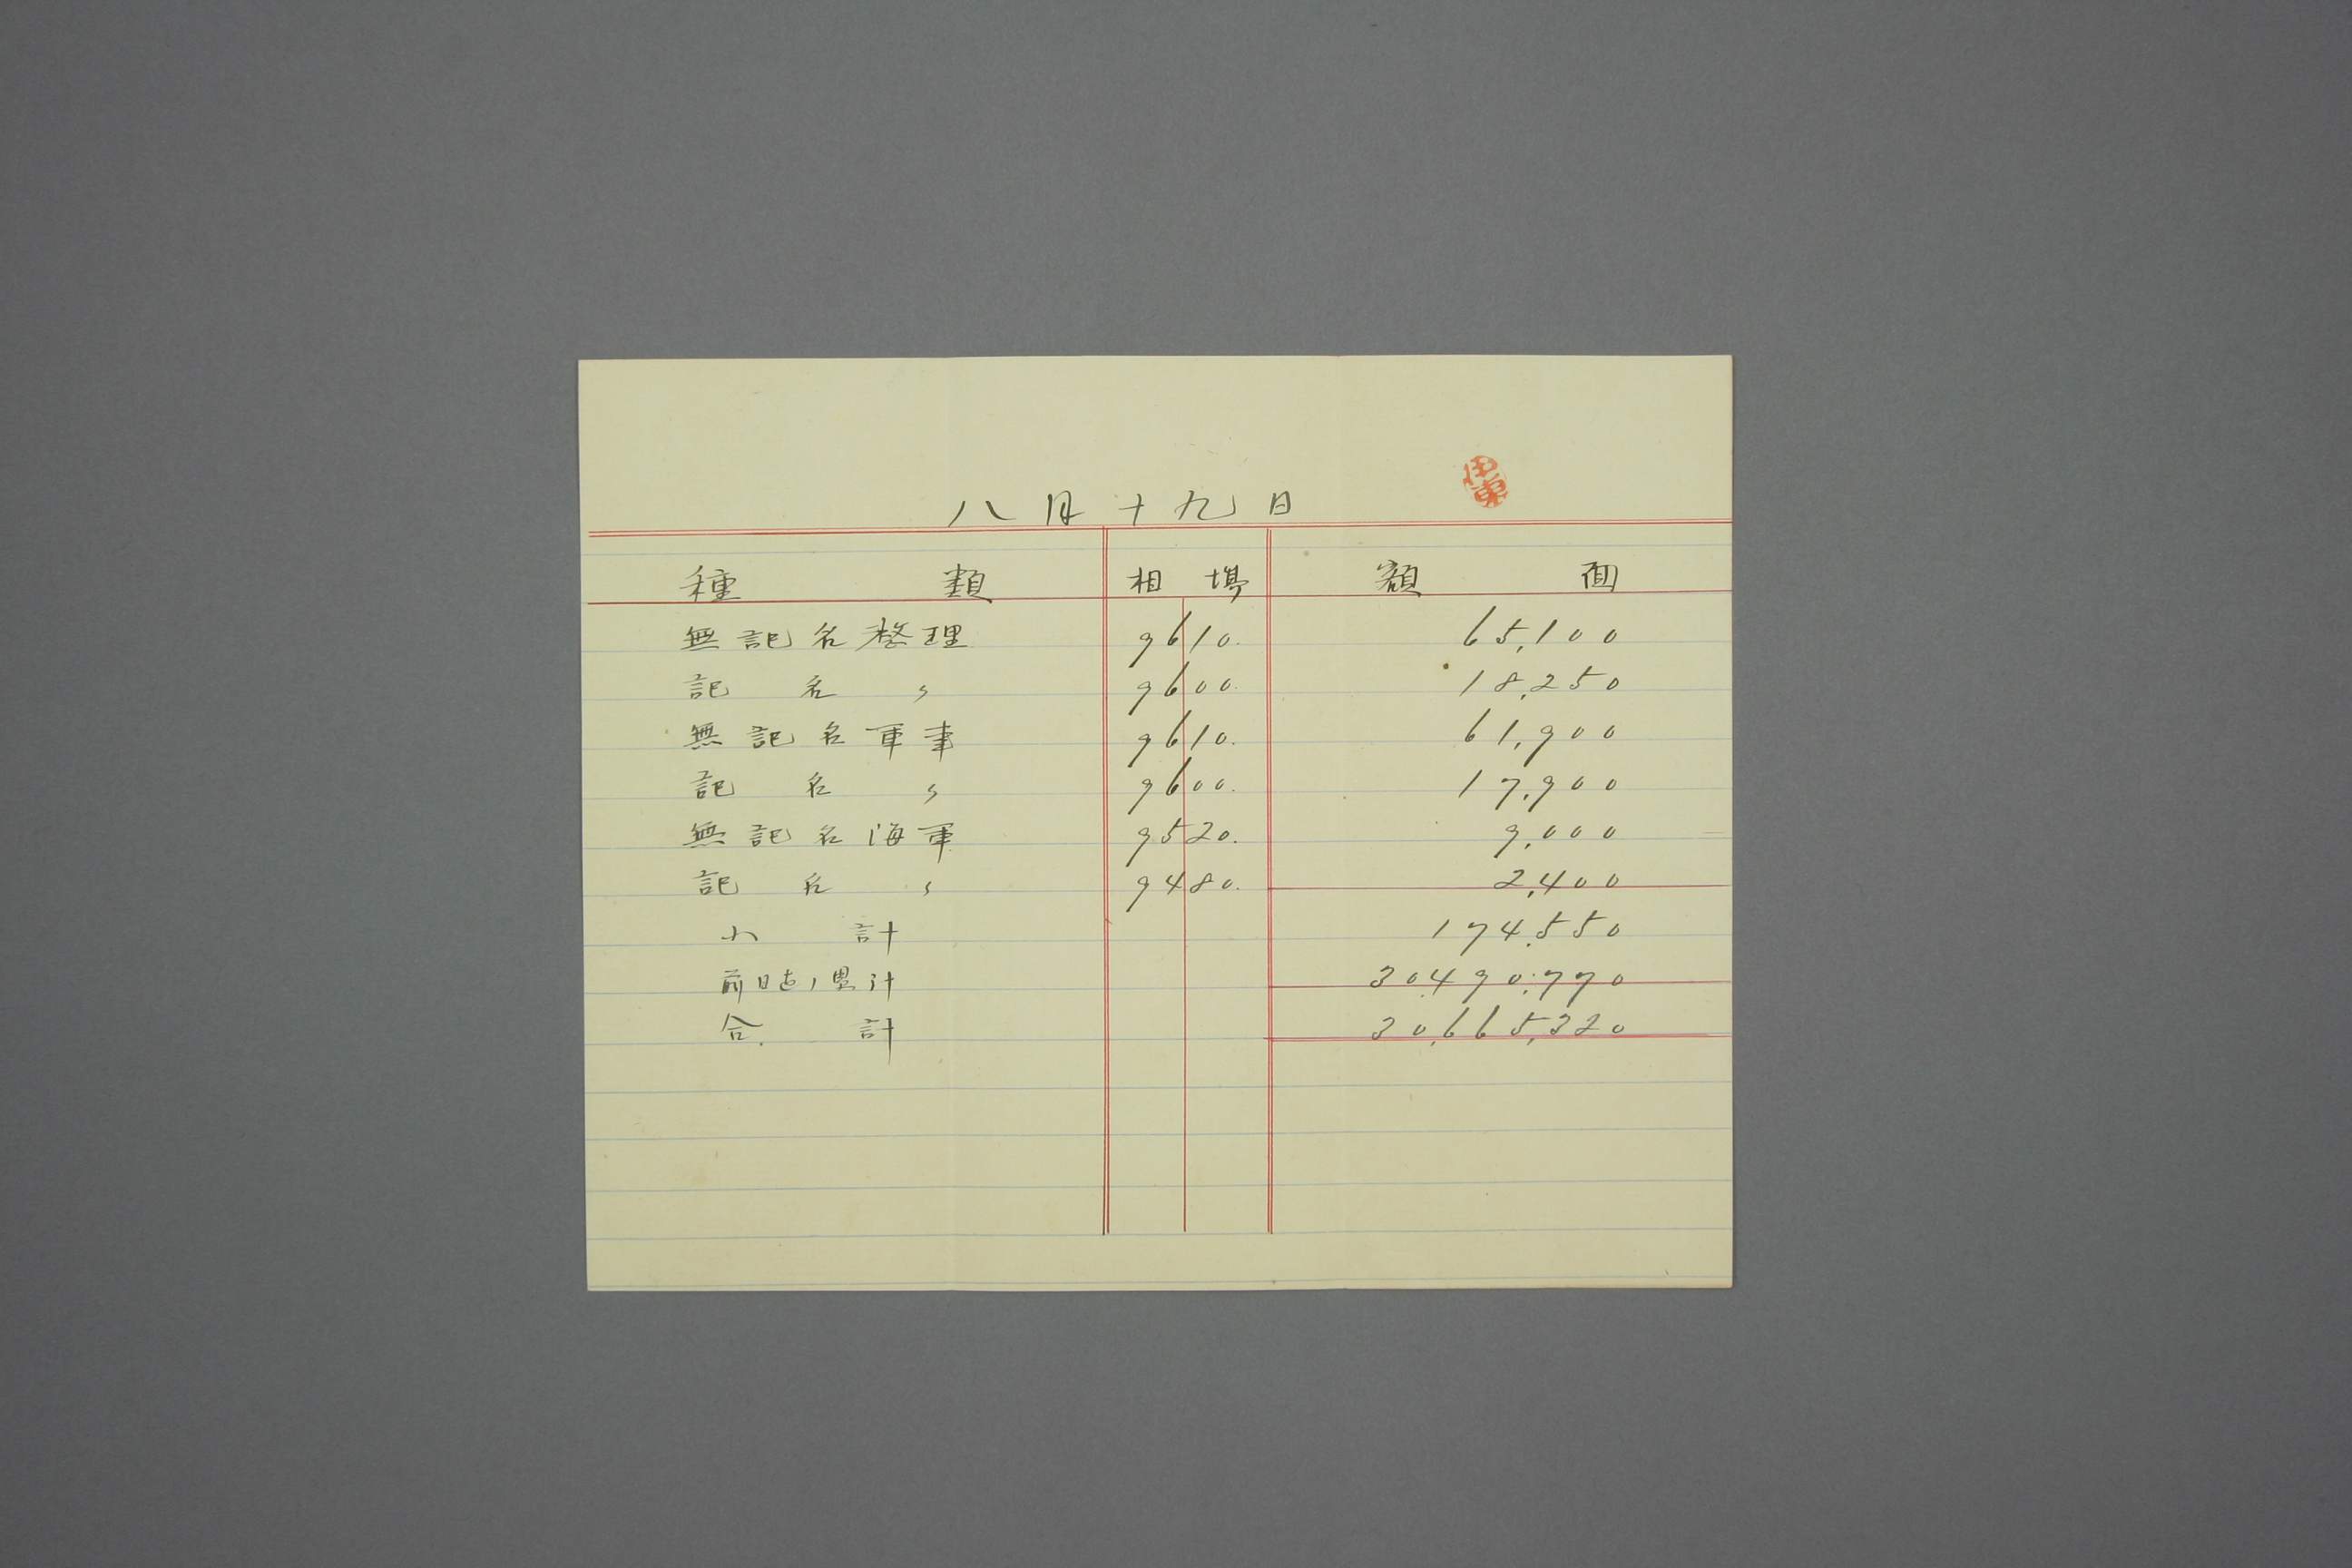 伊東
八月十九日
種類 相場 額面
無記名整理 9610. 65,100
記名〃 9600. 18,250
無記名軍事 9610. 61,900
記名〃 9600. 17,900
無記名海軍 9520. 9,000
記名〃 9480. 2,400
小計 174,550
前日迄ノ累計 30,490,770
合計 30,665,320